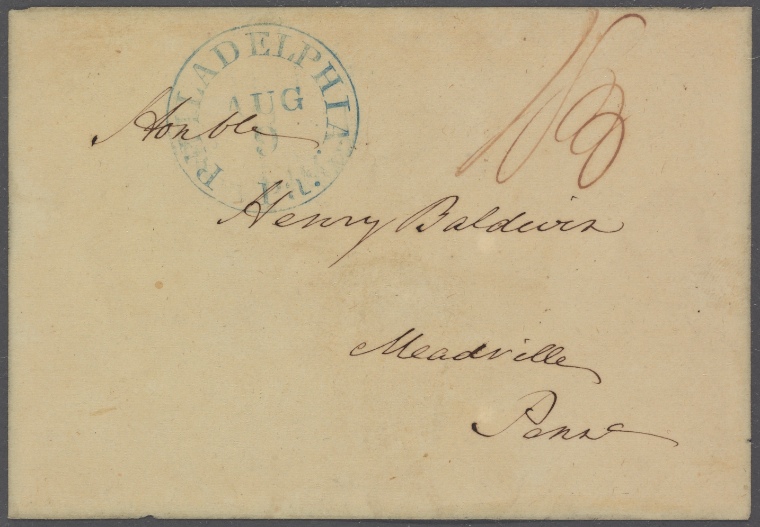 PHILADELPHIA Pa.
AUG
9
Honble
Henry Baldwin
Meadville
Penna